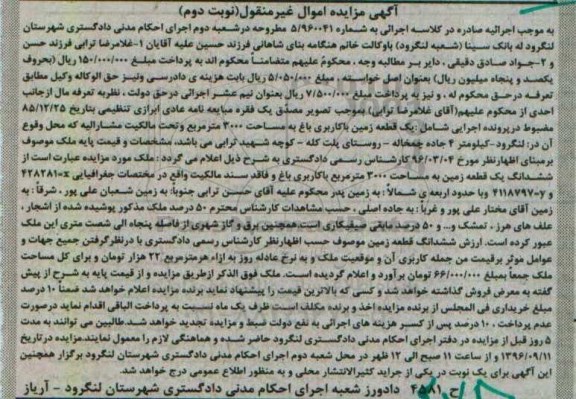 آگهی مزایده اموال غیرمنقول(نوبت دوم)
به موجب اجرائیه صادره در کلاسه اجرائی به شماره ۹۶۰۰۴۱/۵ مطروحه درشعبه دوم اجرای احکام مدنی دادگستری شهرستان
لنگرود له بانک سینا (شعبه لنگرود) باوکالت خانم هنگامه بنای شاهانی فرزند حسین علیه آقایان ۱-غلامرضا ترابی فرزند حسن
و ۲-جواد صادق دقیقی ، دایر بر مطالبه وجه ، محکومٌ علیهم متضامناً محکوم اند به پرداخت مبلغ ۱۵۰/۰۰۰/۰۰۰ ریال (بحروف
یکصد و پنجاه میلیون ریال) بعنوان اصل خواسته ، مبلغ ۵/۰۵۰/۰۰۰ ریال بابت هزینه ی دادرسی ونیـز حق الوکاله وکیل مطابق
تعرفـه درحـق محکوم له ، و نیـز به پرداخت مبلغ ۷/۵۰۰/۰۰۰ ریال بعنوان نیم عشـر اجرائی درحق دولت ، نظر به تعرفه مال ازجانب
احدی از محکوم علیهم(آقای غلامرضا ترابی) بموجب تصویر مصدّق یک فقره مبایعه نامه عادی ابرازی تنظیمی بتاریخ ۸۵/۱۲/۲۵
مضبوط درپرونده اجرایی شامل : یک قطعه زمین باکاربری باغ به مساحت ۳۰۰۰ مترمربع وتحت مالکیت مشارالیه که محل وقوع
آن در: لنگرود- کیلومتر ۴ جاده چمخاله - روستای پلت کله - کوچه شهید ترابی می باشد، مشخصات و قیمت پایه ملک موصوف
برمبنای اظهارنظر مورخ ۹۶/۰۳/۰۴ کارشناس رسمی دادگستری به شرح ذیل اعلام می گردد : ملک مورد مزایده عبارت است از
ششدانگ یک قطعه زمین به مساحت ۳۰۰۰ مترمربع باکاربری باغ و فاقد سند مالکیت واقع در مختصات جغرافیایی ۴۲۸۲۸۱=x
و ۴۱۱۸۷۹۷=y وبا حدود اربعه ی شمالاً : به زمین پدر محکوم علیه آقای حسن ترابی جنوباً: به زمین شعبان علی پور ، شرقاً : به
زمین آقای مختار علی پور و غرباً : به جاده اصلی ، حسب مشاهدات کارشناس محترم ۵۰ درصد ملک مذکور پوشیده شده از اشجار ،
علف های هرز ، تمشک و... و ۵۰ درصد مابقی صیفیکاری است همچنین برق و گاز شهری از فاصله پنجاه الی شصت متری این ملک
عبور کرده است. ارزش ششدانگ قطعه زمین موصوف حسب اظهارنظر کارشناس رسمی دادگستری با درنظرگرفتن جمیع جهات و
عوامل موثر برقیمت من جمله کاربری آن و موقعیت ملک و به نرخ عادله روز به ازاء هرمترمربع ۲۲ هزار تومان و برای کل مساحت
ملک جمعاً بمبلغ ۶۶/۰۰۰/۰۰۰ تومان برآورد و اعلام گردیده اسـت. ملک فوق الذکر ازطریق مزایده و از قیمت پایه به شرح از پیش
گفته به معرض فروش گذاشته خواهد شد و کسی که بالاترین قیمت را پیشنهاد نماید برنده مزایده اعلام خواهد شد ضمناً ۱۰ درصد
مبلغ خریداری فی المجلس از برنده مزایده اخذ و برنده مکلف است ظرف یک ماه نسبت به پرداخت الباقی اقدام نماید درصورت
عدم پرداخت ، ۱۰ درصد پس از کسر هزینه های اجرائی به نفع دولت ضبط و مزایده تجدید خواهد شد. طالبین می توانند به مدت
۵ روز قبل از مزایده در دفتر اجرای احکام مدنی دادگستری لنگرود حاضر شده و هماهنگی لازم را معمول نمایند. مزایده درتاریخ
۱۳۹۶/۰۹/۱۱ و از ساعت ۱۱ صبح الی ۱۲ ظهر در محل شعبه دوم اجرای احکام مدنی دادگستری شهرستان لنگرود برگزار همچنین
این آگهی برای یک نوبت در یکی از جراید کثیرالانتشار محلی و به منظور اطلاع عمومی درج خواهد شد.
ح ۴۵۸۱ دادورز شعبه اجرای احکام مدنی دادگستری شهرستان لنگرود - آریاز